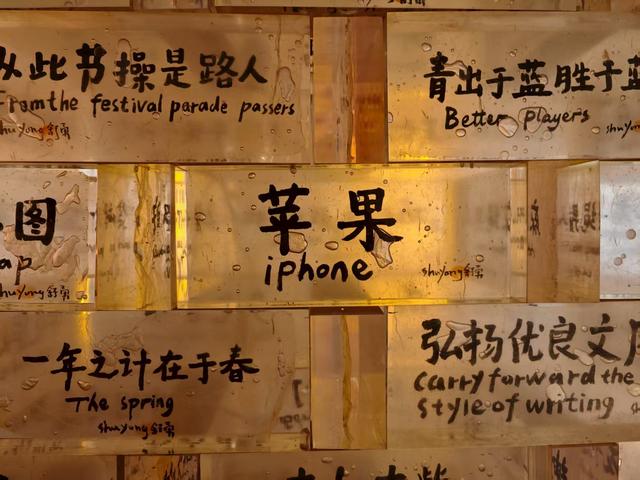 从此节操是路人
From the festival parade passers
shuyong舒勇
青出于蓝胜于蓝
Better players
shuyong
图
ap
shuyong舒勇
苹果
iphone
shuyong舒勇
一年之计在于春
The spring
shuyong舒勇
弘扬优良文
carry forward the
style of writing